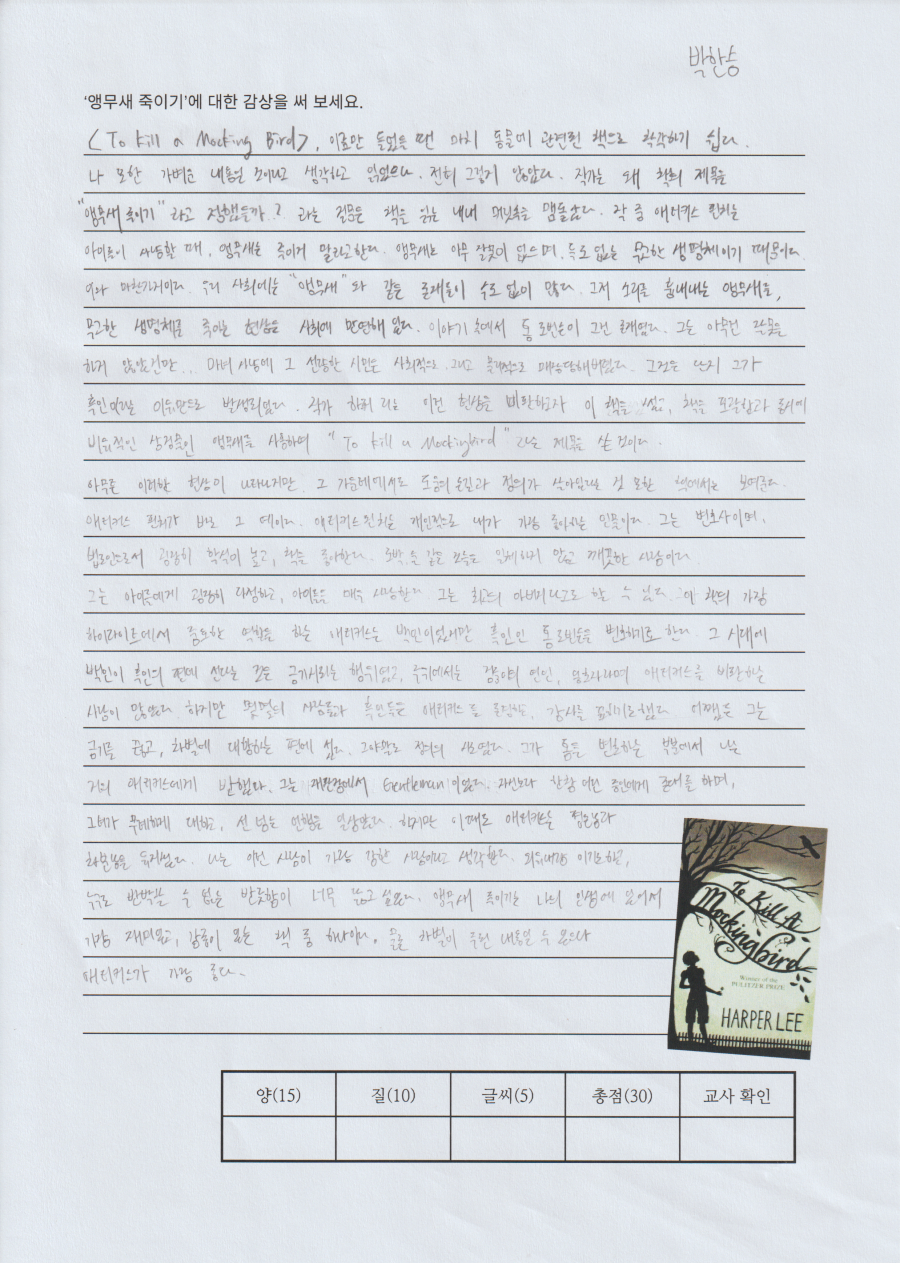 박한승
'앵무새 죽이기'에 대한 감상을 써 보세요.
<To kill a Mocking Bird>, 이름만 들었을 땐 마치 동물에 관련된 책으로 착각하기 쉽다.
나 또한 가벼운 내용일 것이라고 생각하고 읽었으나, 전혀 그렇지 않았다. 작가는 왜 책의 제목을
"앵무새 죽이기" 라고 정했을까? 라는 질문은 책을 읽는 내내 머릿속을 맴돌았다. 작 중 애티커스 핀치는
아이들이 사냥할 때, 앵무새는 죽이지 말라고한다. 앵무새는 아무 잘못이 없으며, 독도 없는 무고한 생명체이기 때문이다.
이와 마찬가지이다. 우리 사회에는 "앵무새" 와 같은 존재들이 수도 없이 많다. 그저 소리를 흉내내는 앵무새를,
무고한 생명체를 죽이는 현상은 사회에 만연해 있다. 이야기 속에서 톰 로빈슨이 그런 존재였다. 그는 아무런 잘못을
하지 않았건만... 마녀 사냥에 그 선량한 시민은 사회적으로, 그리고 육체적으로 매장당해버렸다. 그것은 단지 그가
흑인이라는 이유만으로 발생되었다. 작가 하퍼 리는 이런 현상을 비판하고자 이 책을 썼고, 책을 포괄함과 동시에
비유적인 상징물인 앵무새를 사용하여 "To kill a Mockingbird" 라는 제목을 쓴 것이다.
아무튼 이러한 현상이 나타나지만, 그 가운데에서도 도움의 손길과 정의가 살아있다는 것 또한 책에서는 보여준다.
애티커스 핀치가 바로 그 예이다. 애티커스 핀치는 개인적으로 내가 가장 좋아하는 인물이다. 그는 변호사이며,
법조인으로서 굉장히 학식이 높고, 책을 좋아한다. 도박, 술 같은 것들은 일체 하지 않고 깨끗한 사람이다.
그는 아이들에게 굉장히 다정하고, 아이들을 매우 사랑한다. 그는 최고의 아버지라고도 할 수 있다. 이 책의 가장
하이라이트에서 중요한 역할을 하는 애티커스는 백인이었지만 흑인인 톰 로빈슨을 변호하기로 한다. 그 시대에
백인이 흑인의 편에 선다는 것은 금기시되는 행위였고, 주위에서는 깜둥이의 연인, 옹호자라며 애티커스를 비판하는
사람이 많았다. 하지만 몇몇의 사람들과 흑인들은 애티커스를 존경하고, 감사를 표하기도했다. 어쨌든 그는
금기를 뚫고, 차별에 대항하는 편에 섰다. 그야말로 정의의 사도였다. 그가 톰을 변호하는 부분에서 나는
거의 애티커스에게 반했다. 그는 재판장에서 Gentleman이었다. 자신보다 한참 어린 증인에게 존대를 하며,
그녀가 무례하게 대하고, 선 넘는 언행을 일삼았다. 하지만 이때도 애티커스는 침착함과
차분함을 유지했다. 나는 이런 사람이 가장 강한 사람이라고 생각한다. 외유내강 이기도하고,
누구도 반박할 수 없는 반듯함이 너무 닮고 싶었다. 앵무새 죽이기는 나의 인생에 있어서
가장 재미있고, 감동이 있는 책 중 하나이다. 물론 차별이 주된 내용일 수 있으나
애티커스가 가장 좋다.
To Kill A
Mockingbird
Winner of the
PULITZER PRIZE
HARPER LEE
양(15) 질(10) 글씨(5) 총점(30) 교사 확인